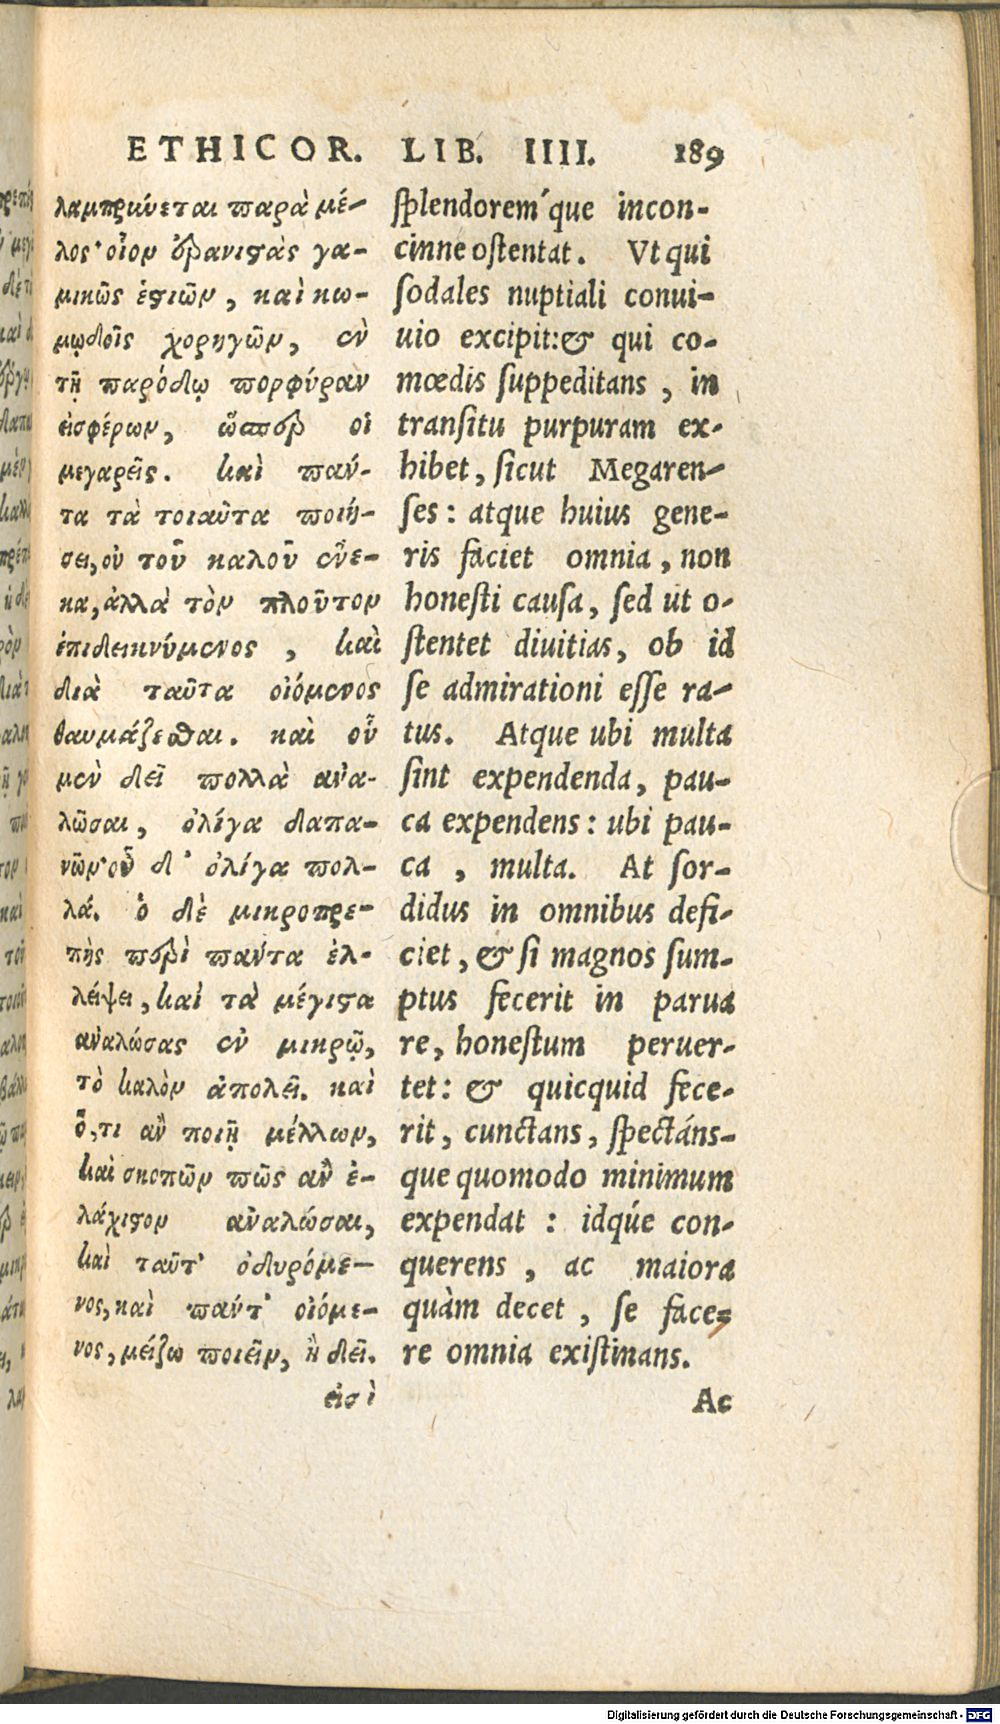 ETHICOR. LIB. IIII. 189
λαμπρύνεται παρὰ μέ-
λος· οἷον ἐρανιστὰς γα-
μικῶς ἑστιῶν, καὶ κω-
μῳδοῖς χορηγῶν, ἐν
τῇ παρόδῳ πορφύραν
εἰσφέρων, ὥσπερ οἱ
μεγαρεῖς. καὶ πάν-
τα τὰ τοιαῦτα ποιή-
σει, οὐ τοῦ καλοῦ ἕνε-
κα, ἀλλὰ τὸν πλοῦτον
ἐπιδεικνύμενος, καὶ
διὰ ταῦτα οἰόμενος
θαυμάζεσθαι. καὶ οὗ
μὲν δεῖ πολλὰ ἀνα-
λῶσαι, ὀλίγα δαπα-
νῶν· οὗ δ' ὀλίγα πολ-
λά. ὁ δὲ μικροπρε-
πὴς περὶ πάντα ἐλ-
λείψει, καὶ τὰ μέγιστα
ἀναλώσας ἐν μικρῷ,
τὸ καλὸν ἀπολεῖ. καὶ
ὅ,τι ἂν ποιῇ μέλλων,
καὶ σκοπῶν πῶς ἂν ἐ-
λάχιστον ἀναλώσαι,
καὶ ταῦτ' ὀδυρόμε-
νος, καὶ πάντ' οἰόμε-
νος, μείζω ποιεῖν, ἢ δεῖ.
εἰσὶ
splendorem´que incon-
cinne ostentat. Vt qui
sodales nuptiali conui-
uio excipit: & qui co-
mœdis suppeditans, in
transitu purpuram ex-
hibet, sicut Megaren-
ses: atque huius gene-
ris faciet omnia, non
honesti causa, sed ut o-
stentet diuitias, ob id
se admirationi esse ra-
tus. Atque ubi multa
sint expendenda, pau-
ca expendens: ubi pau-
ca, multa. At sor-
didus in omnibus defi-
ciet, & si magnos sum-
ptus fecerit in parua
re, honestum peruer-
tet: & quicquid fece-
rit, cunctans, spectáns-
que quomodo minimum
expendat: idqúe con-
querens, ac maiora
quàm decet, se face-
re omnia existimans.
Ac
Digitalisierung gefördert durch die Deutsche Forschungsgemeinschaft - DFG